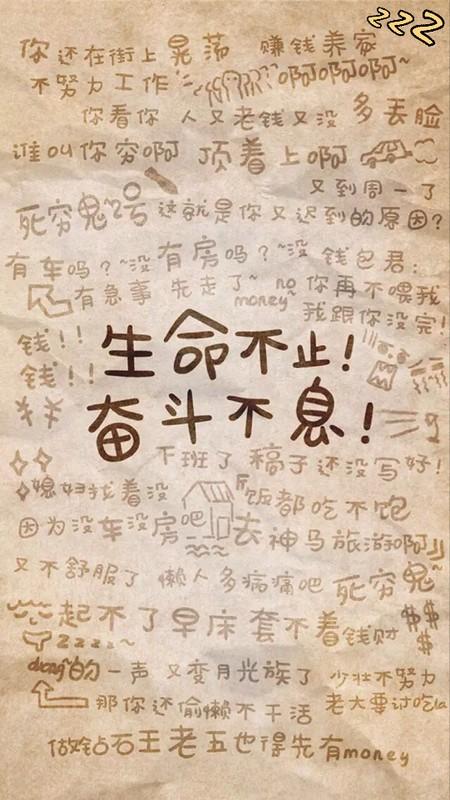 222
你还在街上晃荡 赚钱养家
不努力工作 啊啊啊啊~
你看你 人又老钱又没 多丢脸
谁叫你穷啊 顶着上啊
又到周一了
死穷鬼~2号 这就是你又迟到的原因?
有车吗?~没 有房吗?~没 钱包君:
有急事 先走了~ no money 你再不喂我
我跟你没完!
钱!!
钱!!
生命不止!
奋斗不息!
下班了 稿子还没写好!
媳妇找着没 饭都吃不饱
因为没车没房吧 去神马旅游啊
又不舒服了 懒人多病痛吧 死穷鬼~
起不了早床套不着钱财 $$$$
zzzz~
duang的一声 又变月光族了 少壮不努力
那你还偷懒不干活 老大要讨吃la
做钻石王老五也得先有money